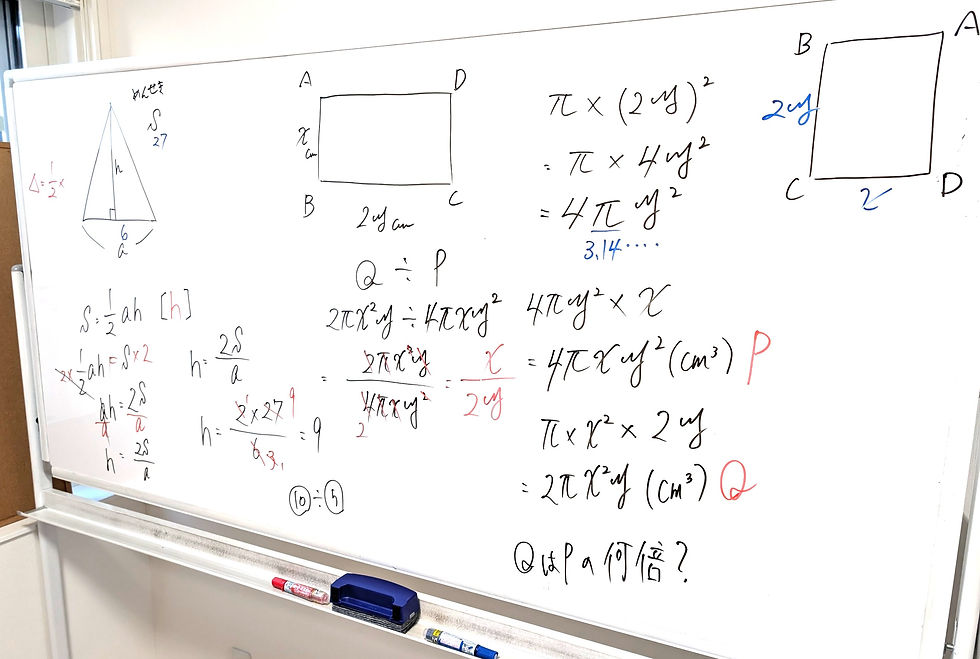 めんせき
S
27
△=1/2×
h
6
a
S=1/2ah [h]
2×1/2ah=S×2
ah/a=2S/a
h=2S/a
h=2S/a
h=2×27/6=9
9
3
1
A D
x
cm
B C
2y cm
Q÷P
2πx²y÷4πxy²
=2πx²y/4πxy²=x/2y
2
⑩÷⑤
π×(2y)²
=π×4y²
=4πy²
3.14‥‥
4πy²×x
=4πxy²(cm³) P
π×x²×2y
=2πx²y(cm³) Q
QはPの何倍?
B A
2y
C D